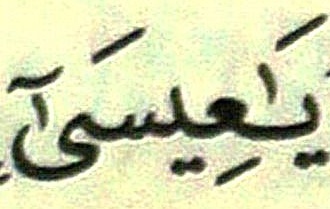 يَـٰعِيسَىٰٓ